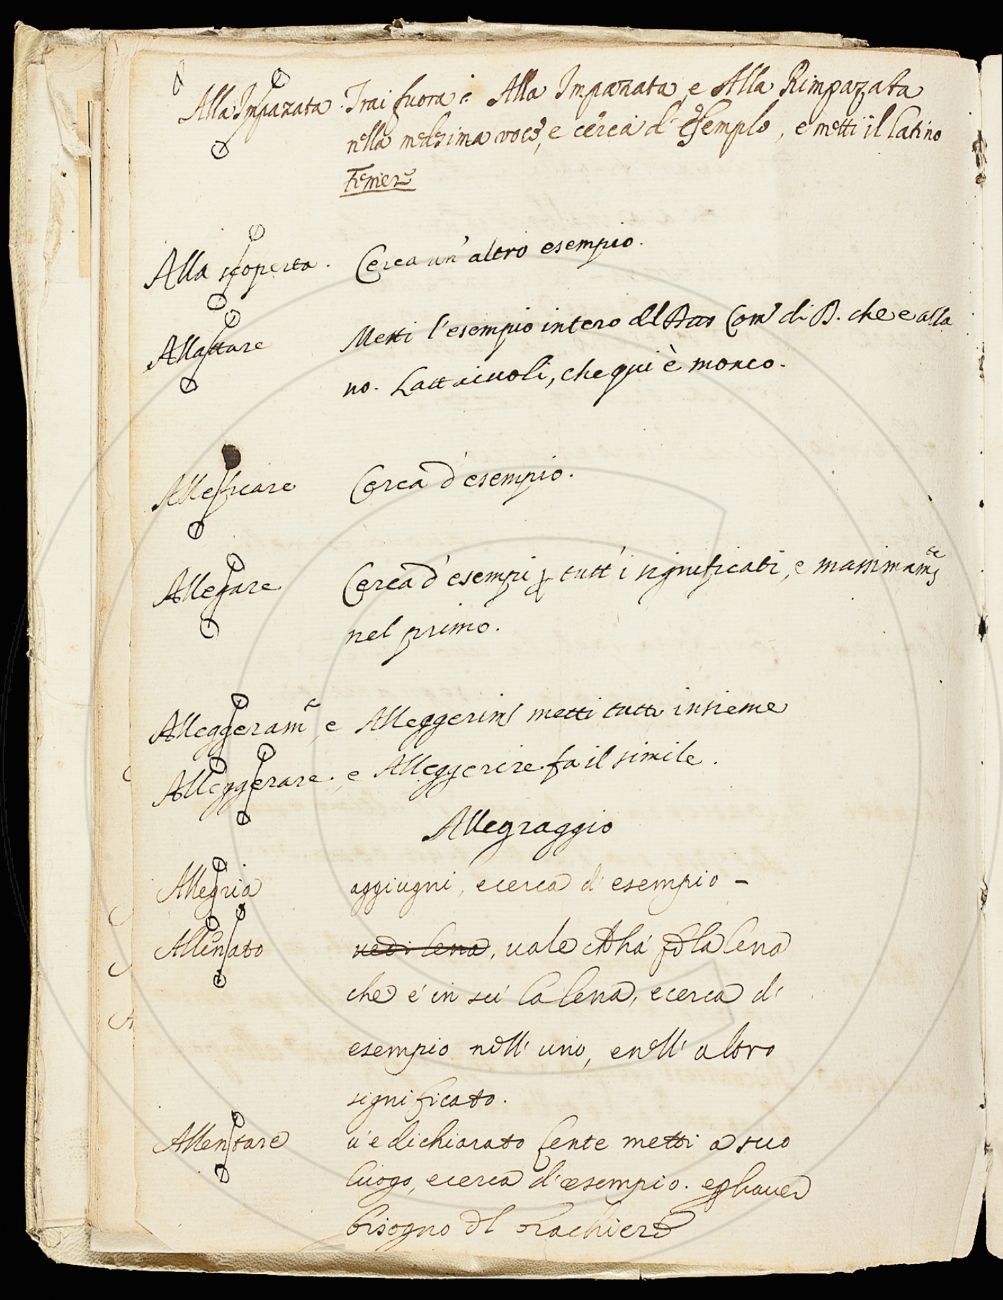 Alla Impazata. Trai fuora: Alla Impazzata e Alla Rimpazzata
nella medesima voce, e cerca d'esemplo, e metti il latino
Temere
Alla scoperta. Cerca un' altro esempio.
Allattare Metti l'esempio intero del Com. di B. che e alla
no. Lattaiuoli, che qui è monco.
Alleficare Cerca d'esempio.
Allegare Cerca d'esempi p tutt'i significati, e massimamte
nel primo.
Alleggeramto e Alleggerimto metti tutti insieme
Alleggerare, e Alleggerire fa il simile.
Allegraggio
Allegria aggiugni, e cerca d'esempio -
Allenato vedi lena, vale ha la lena
che è in su la lena, e cerca di
esempio nell' uno, e nell' altro
significato.
Allentare v'è dichiarato lente metti a suo
luogo, e cerca d'esempio.
bisogno del brachiere